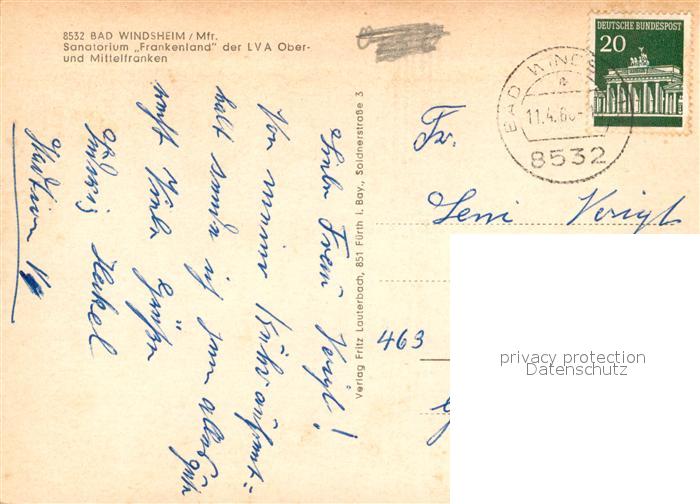 8532 BAD WINDSHEIM / Mfr.
Sanatorium „Frankenland" der LVA Ober-
und Mittelfranken
DEUTSCHE BUNDESPOST
20
BAD WINDS
a
11.4.6
8532
Liebe Frau Voigt!
Von meinem Kuraufent=
halt sende ich Ihnen
recht liebe Grüße
Hedwig
Station
Verlag Fritz Lauterbach, 851 Fürth i. Bay., Soldnerstraße 3
Fr.
Leni Voigt
463
privacy protection
Datenschutz